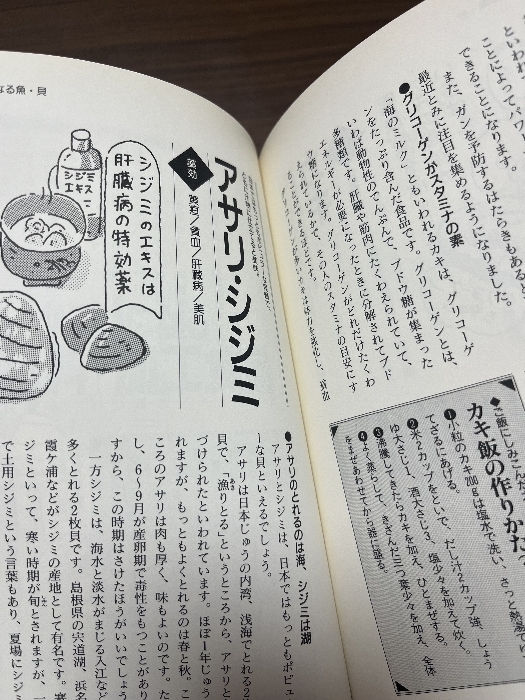 といわれ
ことによって、パワ
できることになります。
また、ガンを予防するはたらきもある
最近とみに注目を集めるようになりました。
●グリコーゲンがスタミナの素
「海のミルク」ともいわれるカキは、グリコーゲ
ンをたっぷり含んだ食品です。グリコーゲンとは、
いわば動物性のてんぷんで、ブドウ糖が集まった
多糖類です。肝臓や筋肉にたくわえられていて、
エネルギーが必要になったときに分解されてブド
ウ糖になります。グリコーゲンがどれだけたくわ
えられているかで、その人のスタミナの目安にす
ることができるほどです。
◆ご飯にしみこんだ
カキ飯の作りかた
❶小粒のカキ200gは塩水で洗い、さっと熱湯
てざるにあげる。
❷米2カップをといで、だし汁2カップ強、しょう
ゆ大さじ1、酒大さじ3、塩少々を加えて炊く。
❸沸騰してきたらカキを加え、ひとまぜする。
❹よく蒸らして、きざんだ三つ葉少々を加え、全体
をまぜあわせてから器に盛る。
なる魚・貝
アサリ・シジミ
薬効
黄疸/貧血/肝臓病/美肌
シジミのエキスは
肝臓病の特効薬
シジミ
エキス
●アサリのとれるのは海、シジミは湖
アサリとシジミは、日本ではもっともポピュ
ーな貝といえるでしょう。
アサリは日本じゅうの内湾、浅海でとれる2
貝で、「漁りとる」というところから、アサリと
づけられたといわれています。ほぼ1年じゅう
れますが、もっともよくとれるのは春と秋。こ
ころのアサリは肉も厚く、味もよいのです。た
し、6〜9月が産卵期で毒性をもつことがあり
すから、この時期はさけたほうがいいでしょう
一方シジミは、海水と淡水がまじる入江など
多くとれる2枚貝です。島根県の宍道湖、浜名
霞ケ浦などがシジミの産地として有名です。寒
ジミといって、寒い時期が旬とされますが、一
で土用シジミという言葉もあり、夏場にシジミ